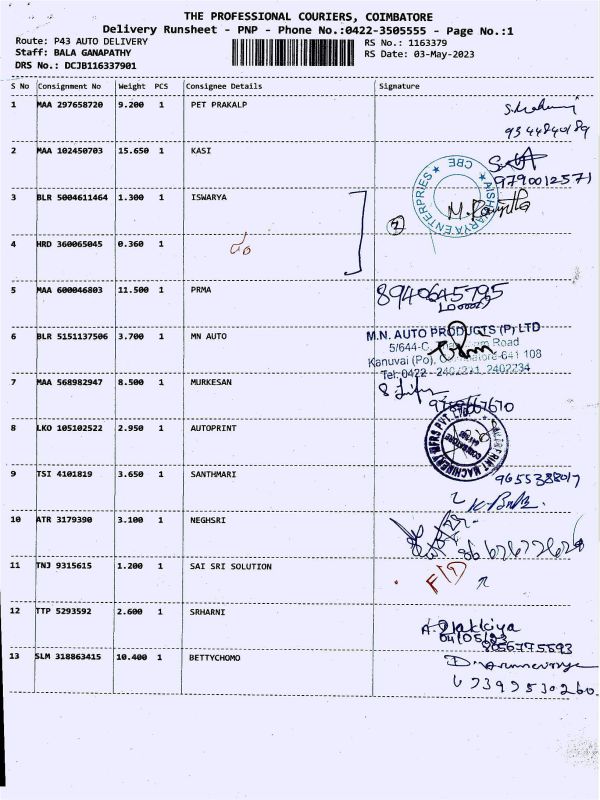 THE PROFESSIONAL COURIERS, COIMBATORE
Delivery Runsheet - PNP - Phone No.:0422-3505555 - Page No.:1
Route: P43 AUTO DELIVERY
RS No.: 1163379
Staff: BALA GANAPATHY
RS Date: 03-May-2023
DRS No.: DCJB116337901
S No Consignment No Weight PCS Consignee Details Signature
1 MAA 297658720 9.200 1 PET PRAKALP
9344840189
2 MAA 102450703 15.650 1 KASI
9790012571
AISHWARYA ENTERPRISES ★ CBE ★
3 BLR 5004611464 1.300 1 ISWARYA
2
4 HRD 360065045 0.360 1
5 MAA 600046803 11.500 1 PRMA
8940645795
6 BLR 5151137506 3.700 1 MN AUTO
M.N. AUTO PRODUCTS (P) LTD
5/644-C, Road
Kanuvai (Po), Coimbatore-641 108
Tel: 0422 - 2402234
7 MAA 568982947 8.500 1 MURKESAN
8 LKO 105102522 2.950 1 AUTOPRINT
AUTOPRINT MACHINERY MFRS PVT. LTD.
COIMBATORE
9 TSI 4101819 3.650 1 SANTHMARI
9655388017
10 ATR 3179390 3.100 1 NEGHSRI
11 TNJ 9315615 1.200 1 SAI SRI SOLUTION
12 TTP 5293592 2.600 1 SRHARNI
04/05/23
8056795593
13 SLM 318863415 10.400 1 BETTYCHOMO